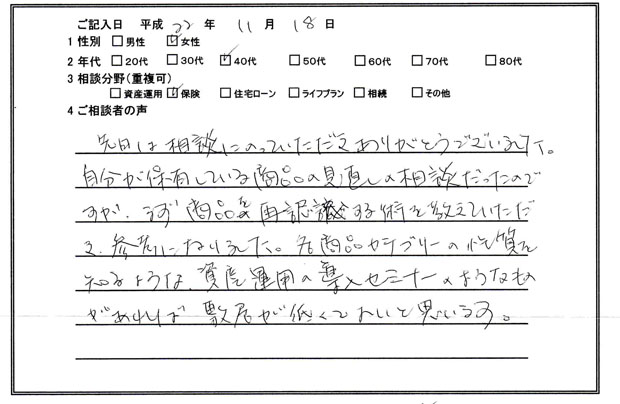 ご記入日 平成 22 年 11 月 18 日
1 性別 □男性 ☑女性
2 年代 □20代 □30代 ☑40代 □50代 □60代 □70代 □80代
3 相談分野(重複可)
□資産運用 ☑保険 □住宅ローン □ライフプラン □相続 □その他
4 ご相談者の声
先日は相談にのっていただきありがとうございました。
自分が保有している商品の見直しの相談だったので
すが、まず商品を再認識する術を教えていただ
き、参考になりました。各商品カテゴリーの性質を
知るような、資産運用の導入セミナーのようなもの
があれば敷居が低くてよいと思います。